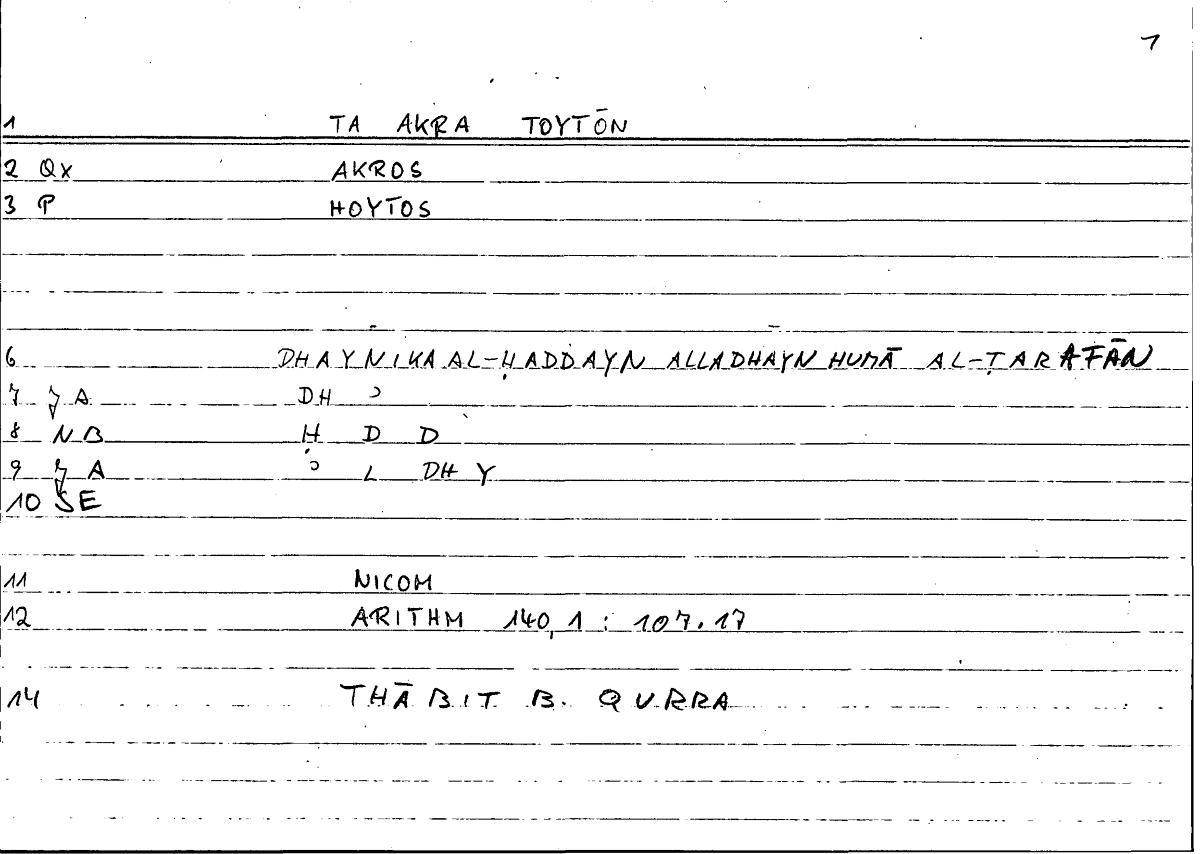 1
1 TA AKRA TOYTŌN
2 Qx AKROS
3 P HOYTOS
6 DHAYNIKA AL-ḤADDAYN ALLADHAYN HUMĀ AL-ṬARAFĀN
7 A DH ʾ
8 NB Ḥ D D
9 A ʾ L DHY
10 SE
11 NICOM
12 ARITHM 140,1 : 107.17
14 THĀBIT B. QURRA